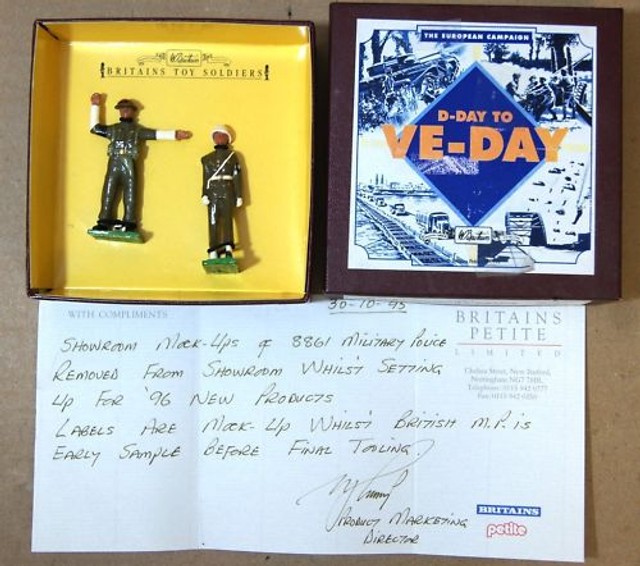 W.Britain
BRITAINS TOY SOLDIERS
THE EUROPEAN CAMPAIGN
D-DAY TO
VE-DAY
W.Britain
30-10-95
WITH COMPLIMENTS
BRITAINS
PETITE
LIMITED
Chelsea Street, New Basford,
Nottingham NG7 7HR,
Telephone: 0115 942 0777
Fax: 0115 942
SHOWROOM MOCK-UPS OF 8861 MILITARY POLICE
REMOVED FROM SHOWROOM WHILST SETTING
UP FOR '96 NEW PRODUCTS
LABELS ARE MOCK-UP WHILST BRITISH M.P. IS
EARLY SAMPLE BEFORE FINAL TOOLING.
PRODUCT MARKETING
DIRECTOR
BRITAINS
petite